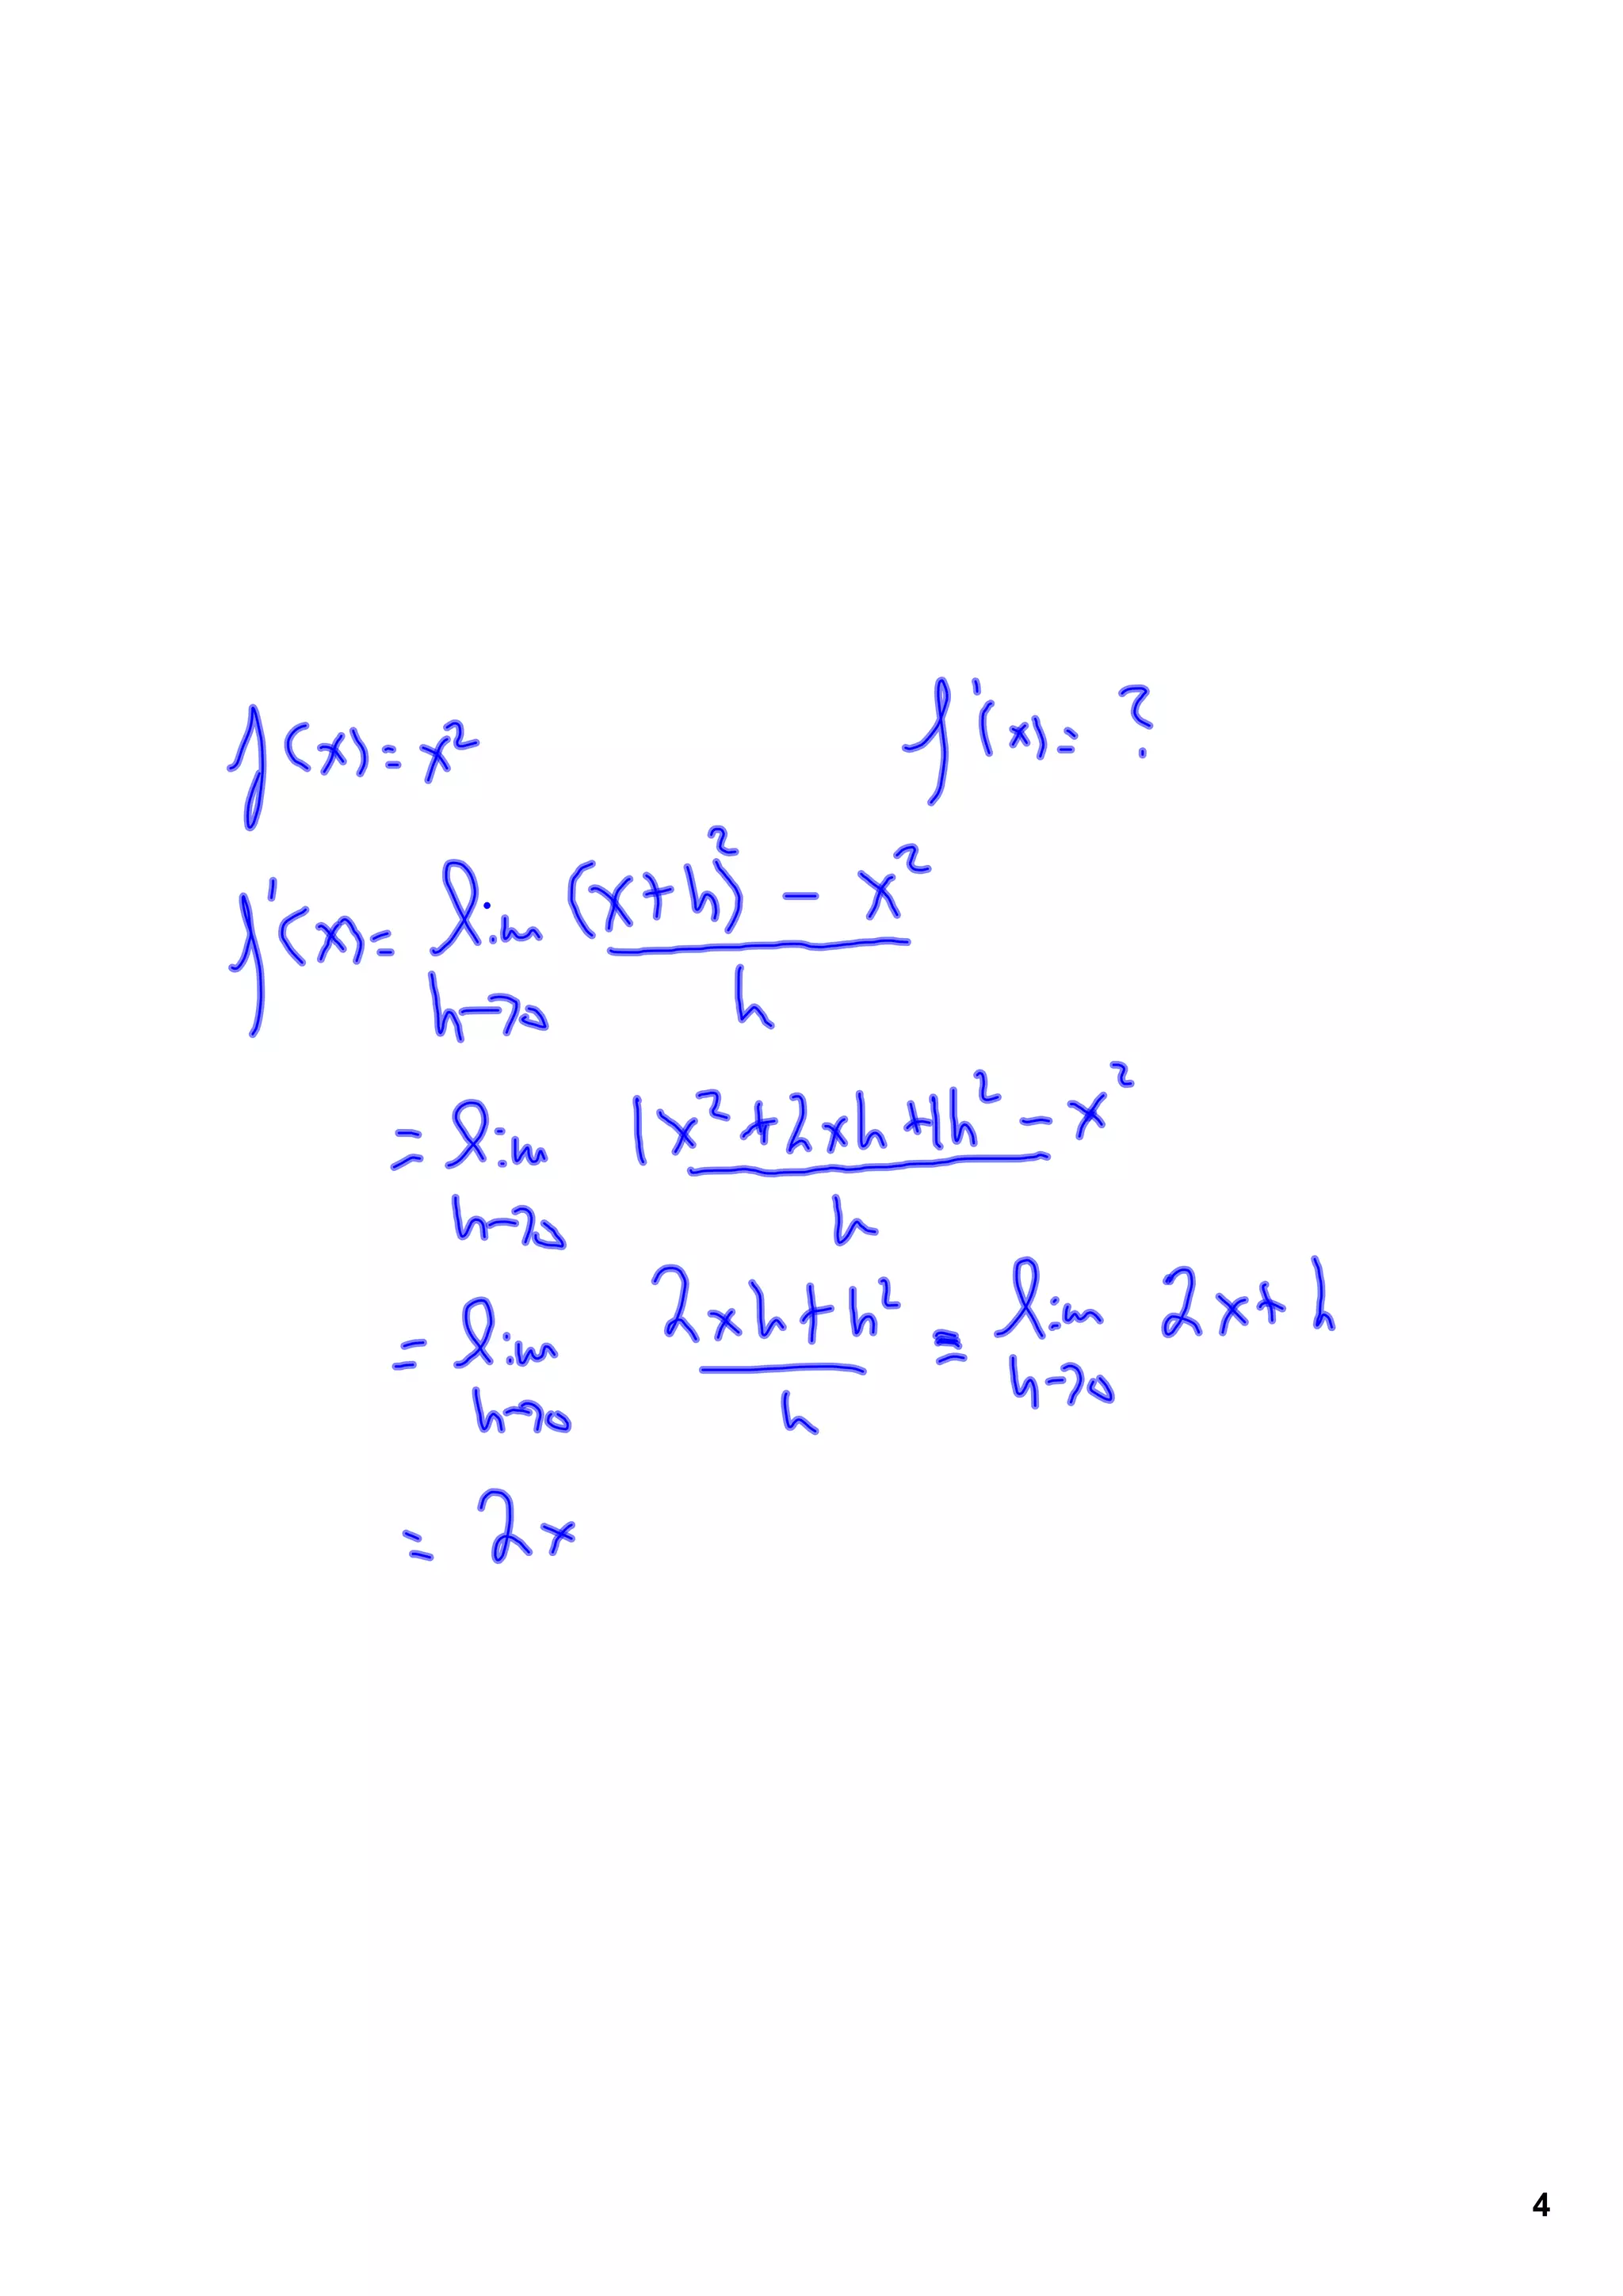 f(x) = x² f'(x) = ?
f'(x) = lim h→0 ((x+h)² − x²) / h
= lim h→0 (1x² + 2xh + 1h² − x²) / h
= lim h→0 (2xh + h²) / h = lim h→0 2x + h
= 2x
4